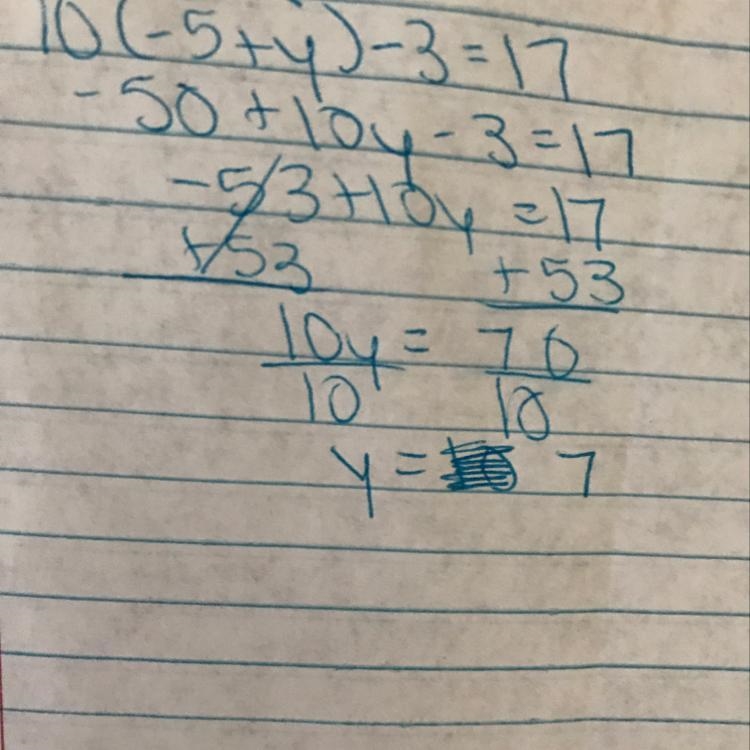 10(-5+y)-3=17
-50+10y-3=17
-53+10y =17
+53 +53
10y = 70
10 10
y = 7